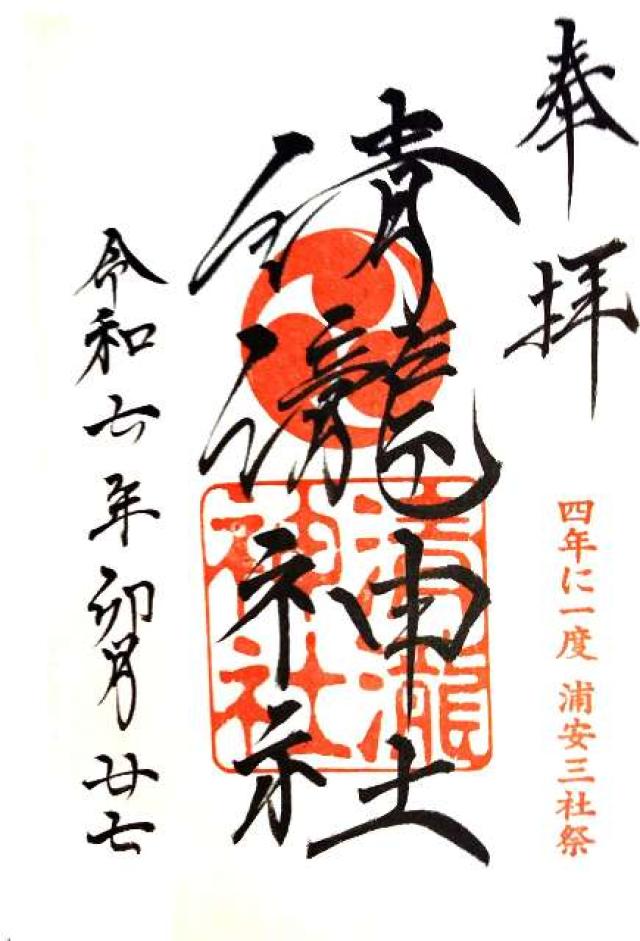 奉拝
四年に一度 浦安三社祭
清瀧神社
清瀧神社
令和六年卯月廿七